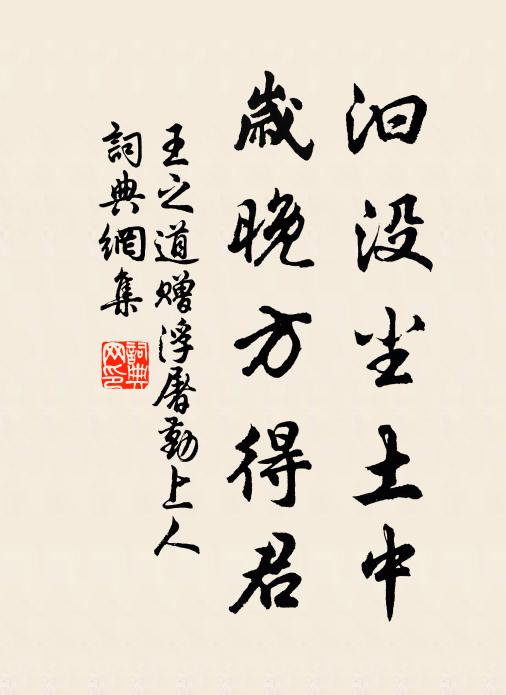 汩没尘土中
歲晚方得君
王之道赠浮屠勤上人
詞典網集
詞典网印